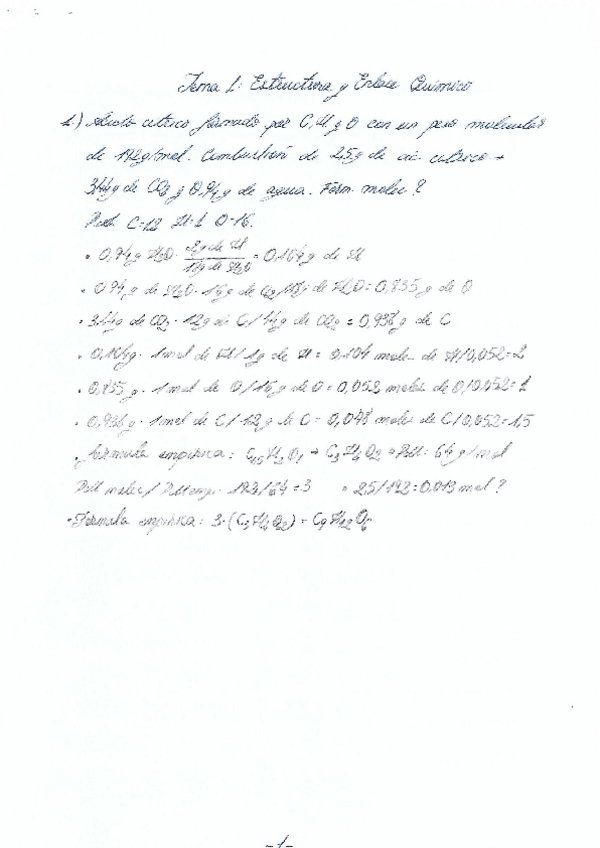 Tema 1: Estructura y Enlace Químico
1.) Ácido cítrico formado por C, H y O con un peso molecular
de 192g/mol. Combustión de 2,5g de ác. cítrico →
3,44g de CO2 y 0,94g de agua. Fórm. molec?
C=12 H=1 O=16.
• 0,94g H2O · 2g de H / 18g de H2O = 0,104g de H
• 0,94g de H2O · 16g de O2/18g de H2O = 0,835g de O
• 3,44g de CO2 · 12g de C/44g de CO2 = 0,938g de C
• 0,104g · 1mol de H/1g de H = 0,104 moles de H/0,052=2
• 0,835g · 1mol de O/16g de O = 0,052 moles de O/0,052=1
• 0,938g · 1mol de C/12g de C = 0,078 moles de C/0,052=1,5
• Fórmula empírica: C1,5H2O1 → C3H4O2 → PM: 64g/mol
PM molec/PM emp: 192/64=3 • 2,5/192=0,013mol?
• Fórmula empírica: 3·(C3H4O2) = C9H12O6
-1-